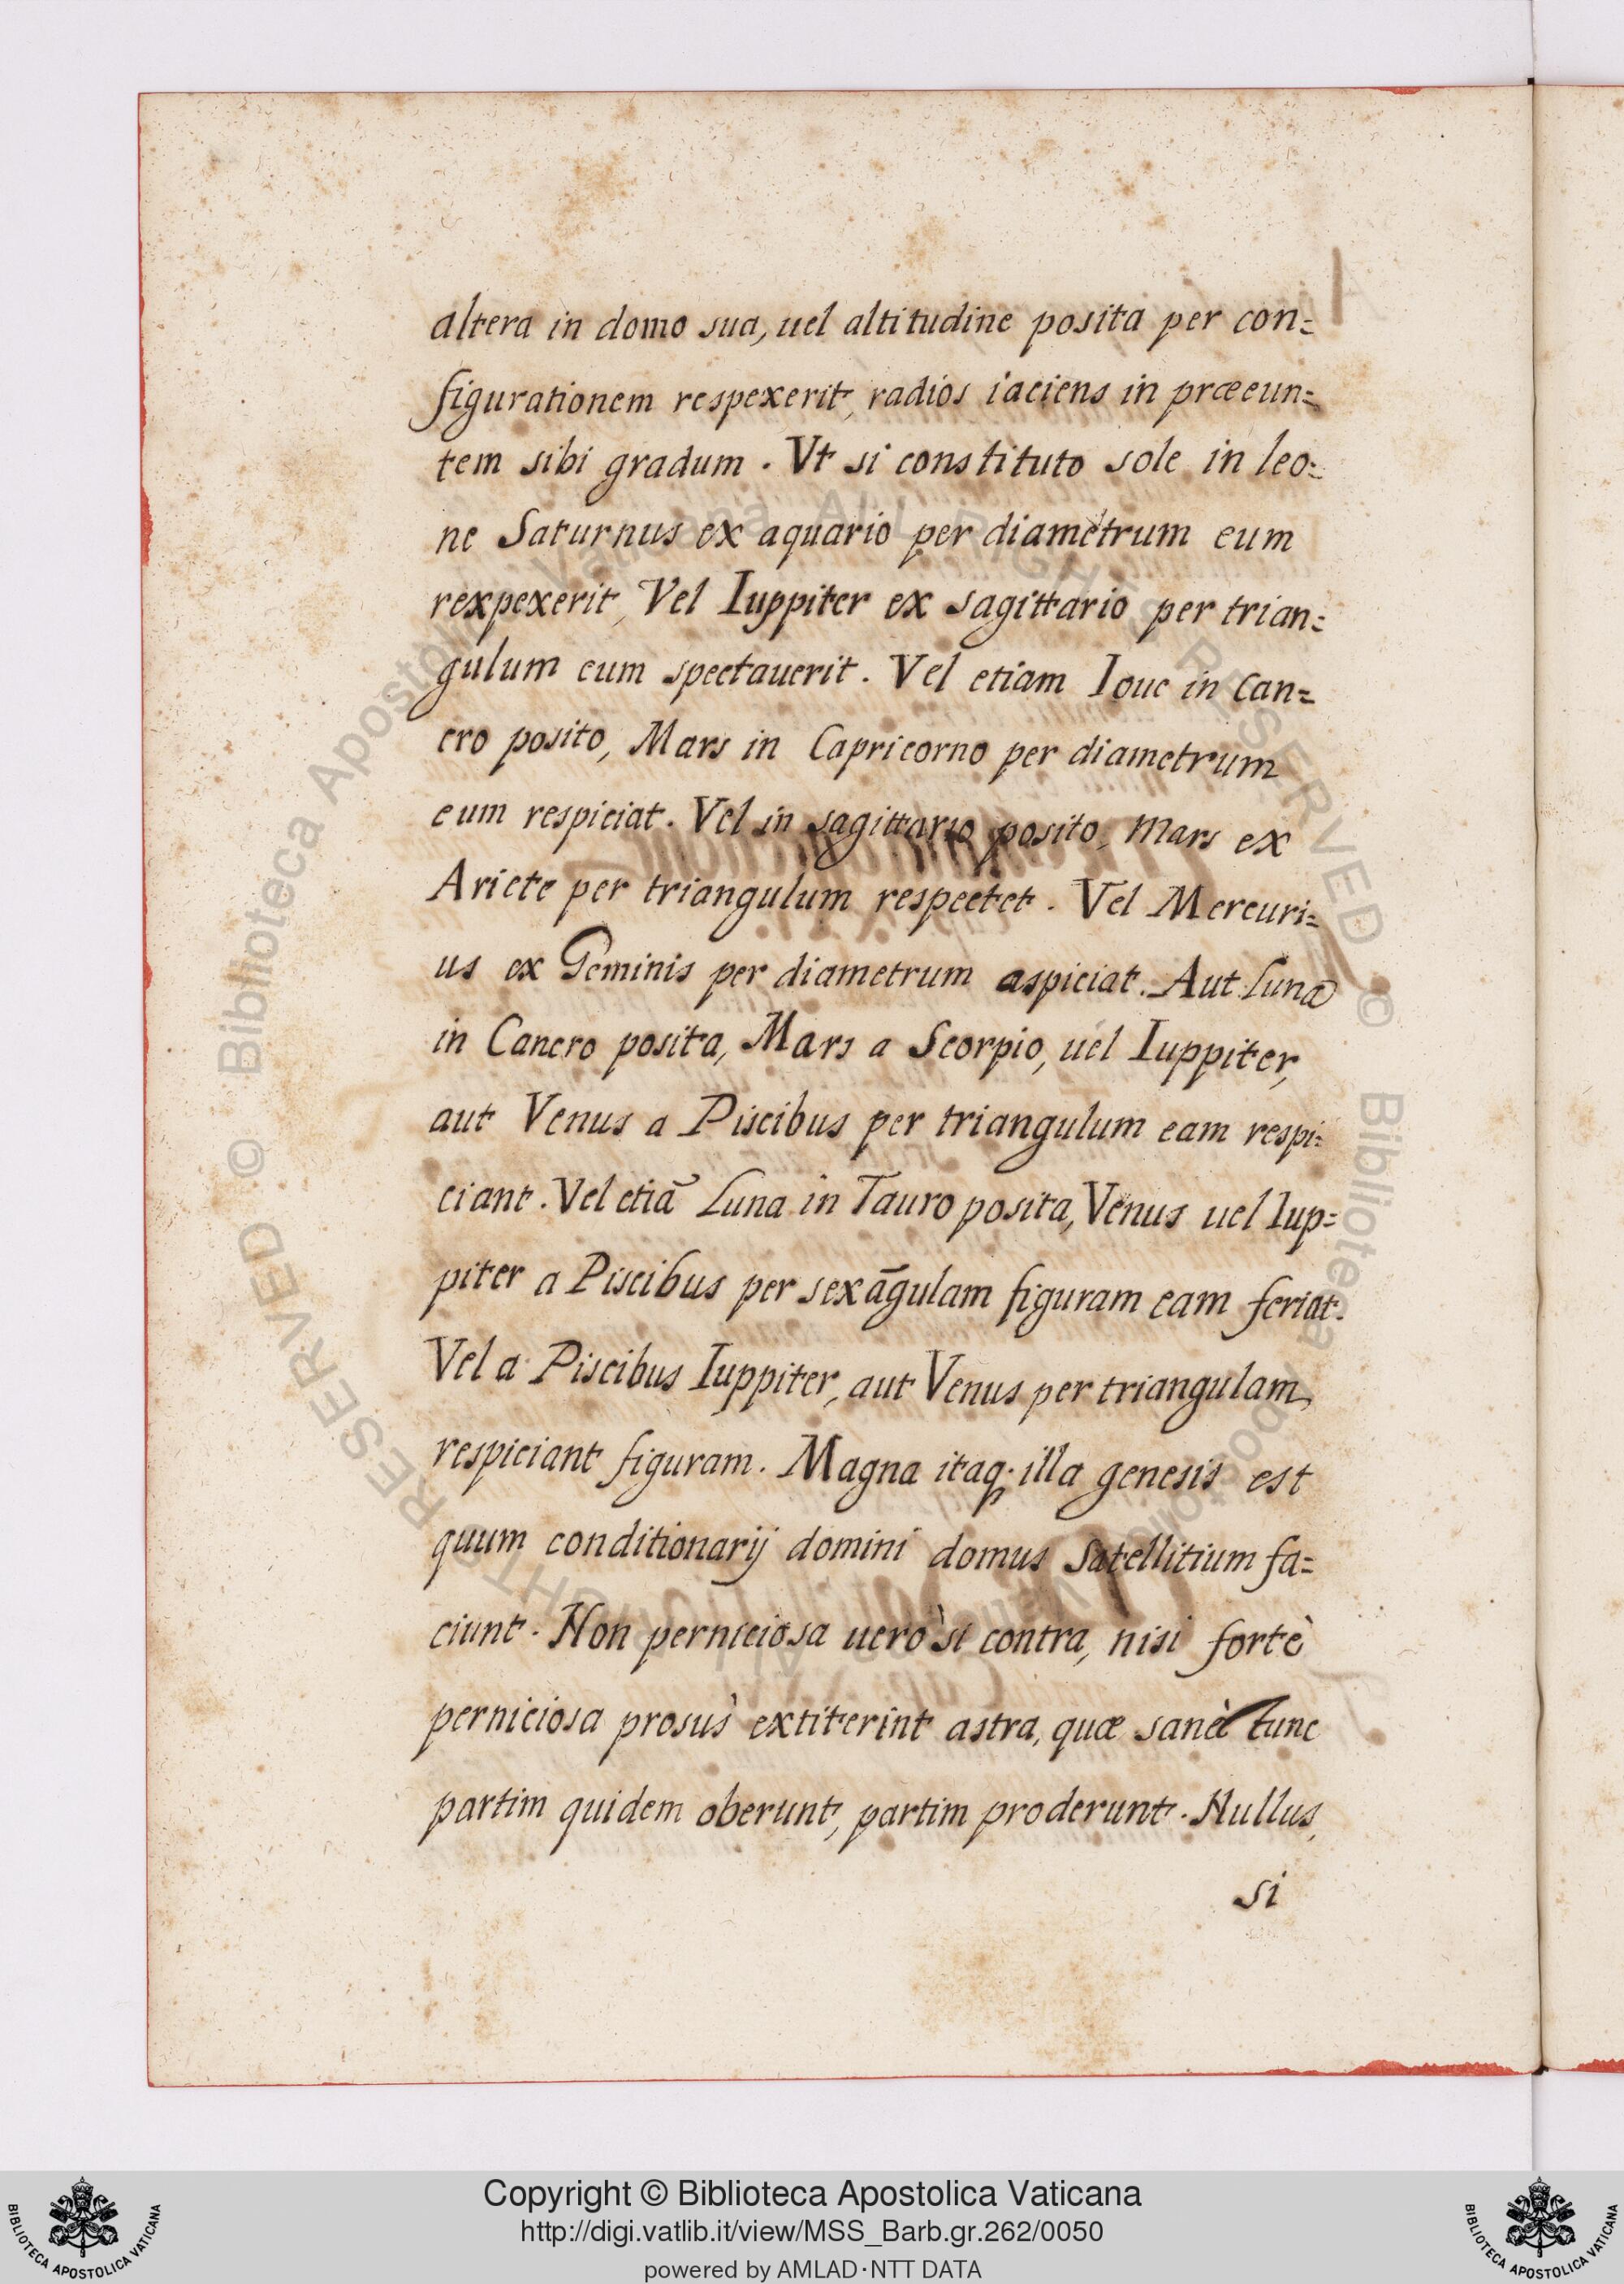 altera in domo sua, uel altitudine posita per con=
figurationem respexerit, radios iaciens in præeun=
tem sibi gradum. Vt si constituto sole in leo=
ne Saturnus ex aquario per diametrum eum
rexpexerit, Vel Iuppiter ex sagittario per trian=
gulum eum spectauerit. Vel etiam Ioue in Can=
cro posito, Mars in Capricorno per diametrum
eum respiciat. Vel in sagittario posito, Mars ex
Ariete per triangulum respectet. Vel Mercuri=
us ex Geminis per diametrum aspiciat. Aut Luna
in Cancro posita, Mars a Scorpio, uel Iuppiter,
aut Venus a Piscibus per triangulum eam respi=
ciant. Vel etiā Luna in Tauro posita, Venus uel Iup=
piter a Piscibus per sexāgulam figuram eam feriat.
Vel a Piscibus Iuppiter, aut Venus per triangulam
respiciant figuram. Magna itaq. illa genesis est
quum conditionarij domini domus Satellitium fa=
ciunt. Non perniciosa uerò si contra, nisi fortè
perniciosa prosus̀ extiterint astra, quæ sanè tunc
partim quidem oberunt, partim proderunt. Nullus,
si
RESERVED © Biblioteca Apostolica Vaticana ALL RIGHTS RESERVED © Biblioteca Apostolica Vaticana ALL RIGHTS
Copyright © Biblioteca Apostolica Vaticana
http://digi.vatlib.it/view/MSS_Barb.gr.262/0050
powered by AMLAD·NTT DATA
BIBLIOTECA APOSTOLICA VATICANA
BIBLIOTECA APOSTOLICA VATICANA